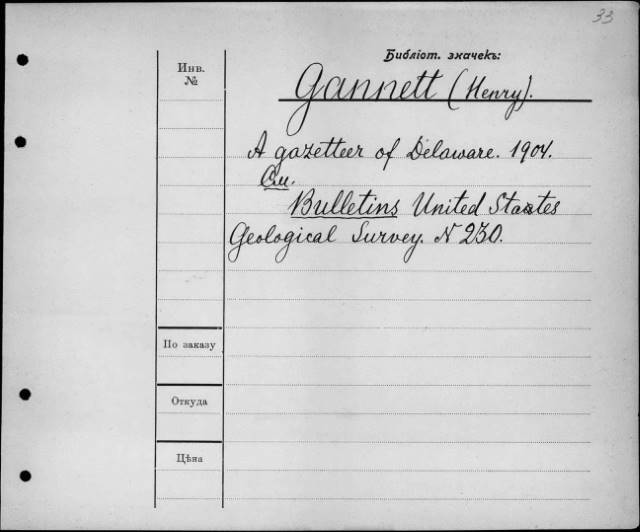 33
Библіот. значекъ:
Инв.
№
Gannett (Henry).
A gazetteer of Delaware. 1904.
См.
Bulletins United States
Geological Survey. N 230.
По заказу
Откуда
Цѣна